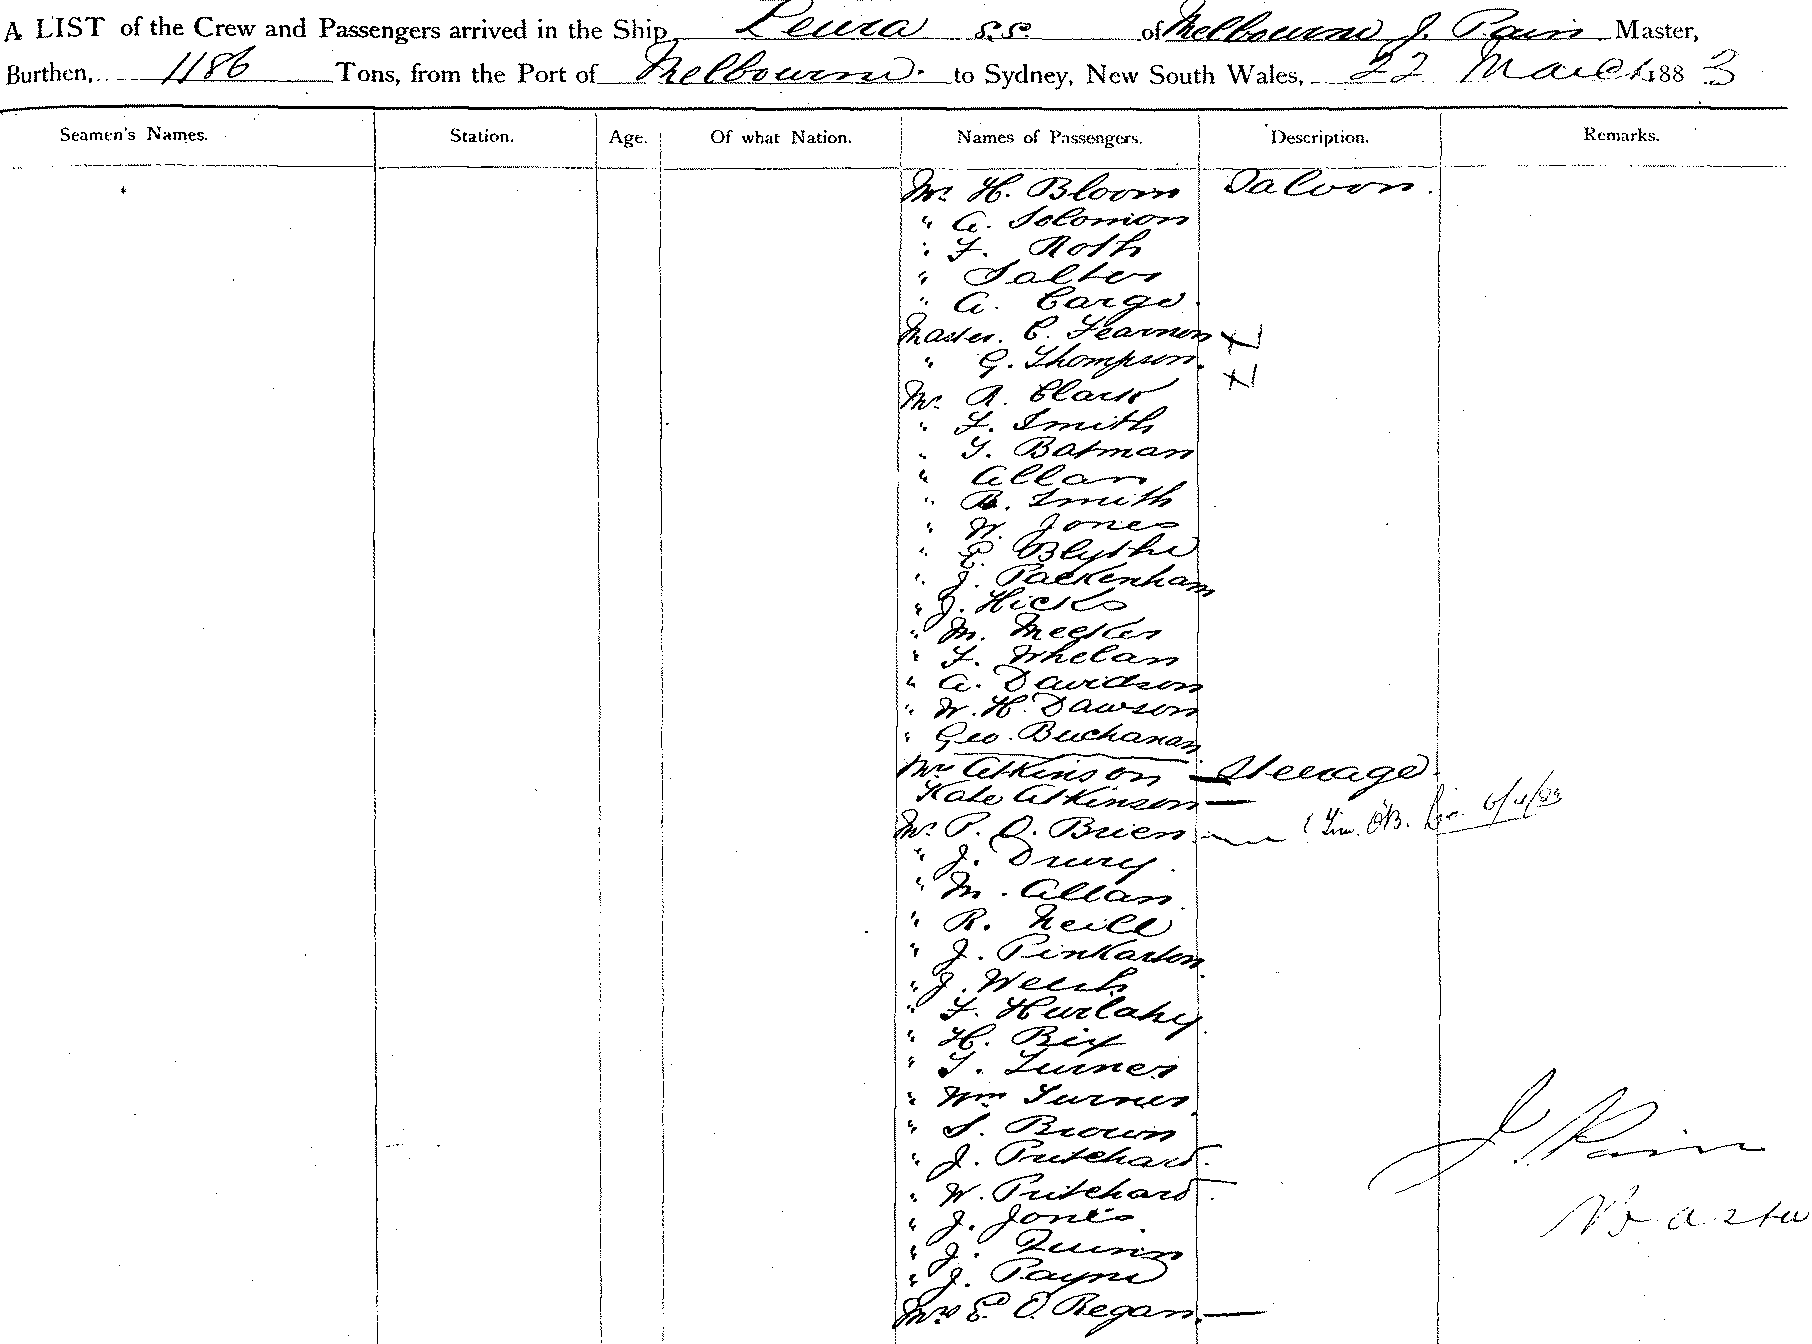 A LIST of the Crew and Passengers arrived in the Ship Leura s.s. of Melbourne J. Pain Master,
Burthen, 1186 Tons, from the Port of Melbourne to Sydney, New South Wales, 22 March 1883
Seamen's Names. Station. Age. Of what Nation. Names of Passengers. Description. Remarks.
Mr. H. Bloom Saloon.
" A. Solomon
" F. Roth
" Salter
" A. Cargo
Master. C. Fearnon
" G. Thompson.
Mr. R. Clark
" F. Smith
" T. Batman
" Allan
" B. Smith
" W. Jones
" E. Blythe
" J. Packenham
" J. Hicks
" M. Meeker
" F. Whelan
" A. Davidson
" W. H. Dawson
" Geo. Buchanan
Mrs Atkinson — Steerage
Kate Atkinson —
Mr. P. O. Brien — 6/4/83
" J. Drury
" M. Allan
" R. Neill
" J. Pinkarton
" J. Welsh
" F. Hurlahy
" H. Bix
" T. Turner
" Wm Turner
" S. Brown
" J. Pritchard
" W. Pritchard
" J. Jones
" J. Quinn
" J. Payne
Mrs E. O. Regan —
J. Pain
Master